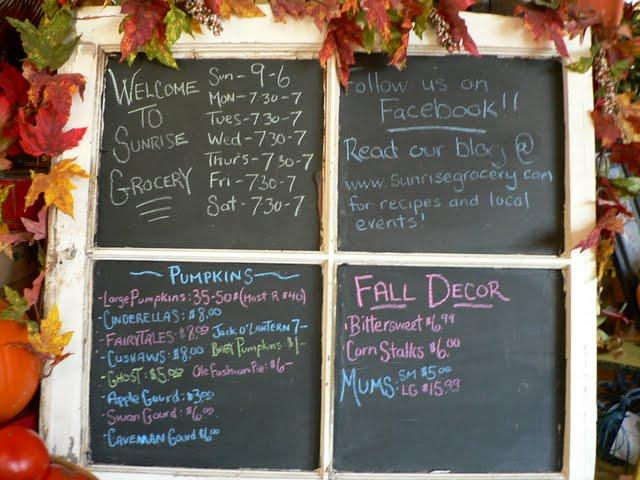 WELCOME
TO
SUNRISE
GROCERY
Sun - 9-6
Mon - 7:30-7
Tues - 7:30-7
Wed - 7:30-7
Thurs - 7:30-7
Fri - 7:30-7
Sat - 7:30-7
Follow us on
Facebook!!
Read our blog @
www.sunrisegrocery.com
for recipes and local
events!
PUMPKINS
- Large Pumpkins: 35-50$ (Most R $40)
- CINDERELLAS: $8.00
- FAIRYTALES: $8.00 Jack O'LANTERN 7-
- CUSHAWS: $8.00 Pumpkins: $1-
- GHOST: $5.00 Ole Fashion Pie: $6-
- Apple Gourd: $3.00
- Swan Gourd: $6.00
- CAVEMAN Gourd $6.00
FALL DECOR
Bittersweet $6.99
Corn Stalks $6.00
MUMS: SM $5.00
LG $15.99